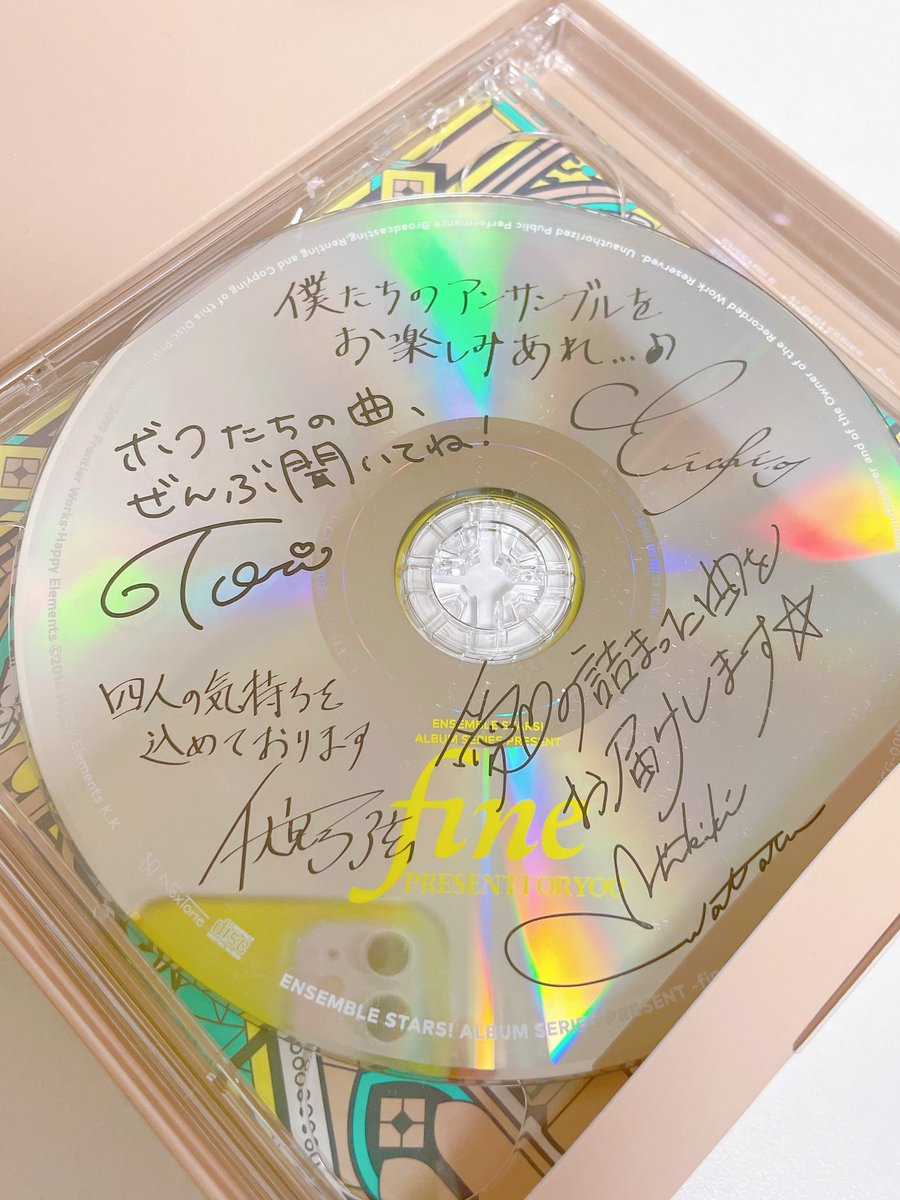 僕たちのアンサンブルを
お楽しみあれ…♪
Eichi
ボクたちの曲、
ぜんぶ聞いてね!
Tori
四人の気持ちを
込めております
伏見弓弦
の詰まった曲を
お届けします☆
Hibiki
Wataru
ENSEMBLE STARS!
ALBUM SERIES PRESENT
fine
PRESENT FOR YOU
NexTone
disc
ENSEMBLE STARS! ALBUM SERIES PRESENT -fin
Unauthorized Public Performance,Broadcasting,Renting and Copying of this Disc
and of the Owner of the Recorded Work Reserved.
Frontier Works・Happy Elements ©201
Elements K.K